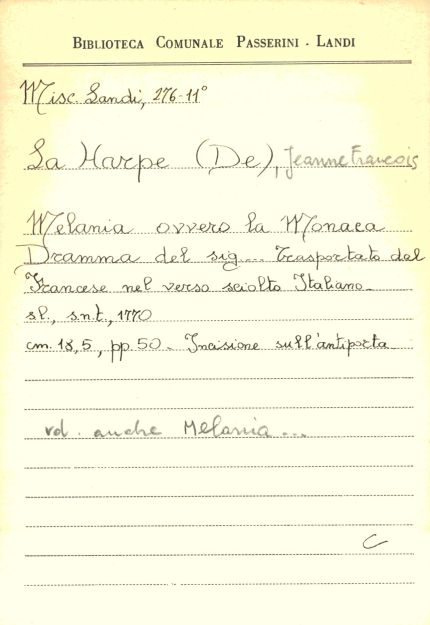 BIBLIOTECA COMUNALE PASSERINI - LANDI
Misc. Landi, 276-11°
La Harpe (De), Jeanne Francois
Melania ovvero la Monaca
Dramma del sig... trasportato dal
Francese nel verso sciolto Italiano.
sl., s.n.t., 1770
cm. 18,5, pp. 50 - Incisione sull'antiporta
vd. anche Melania...
C